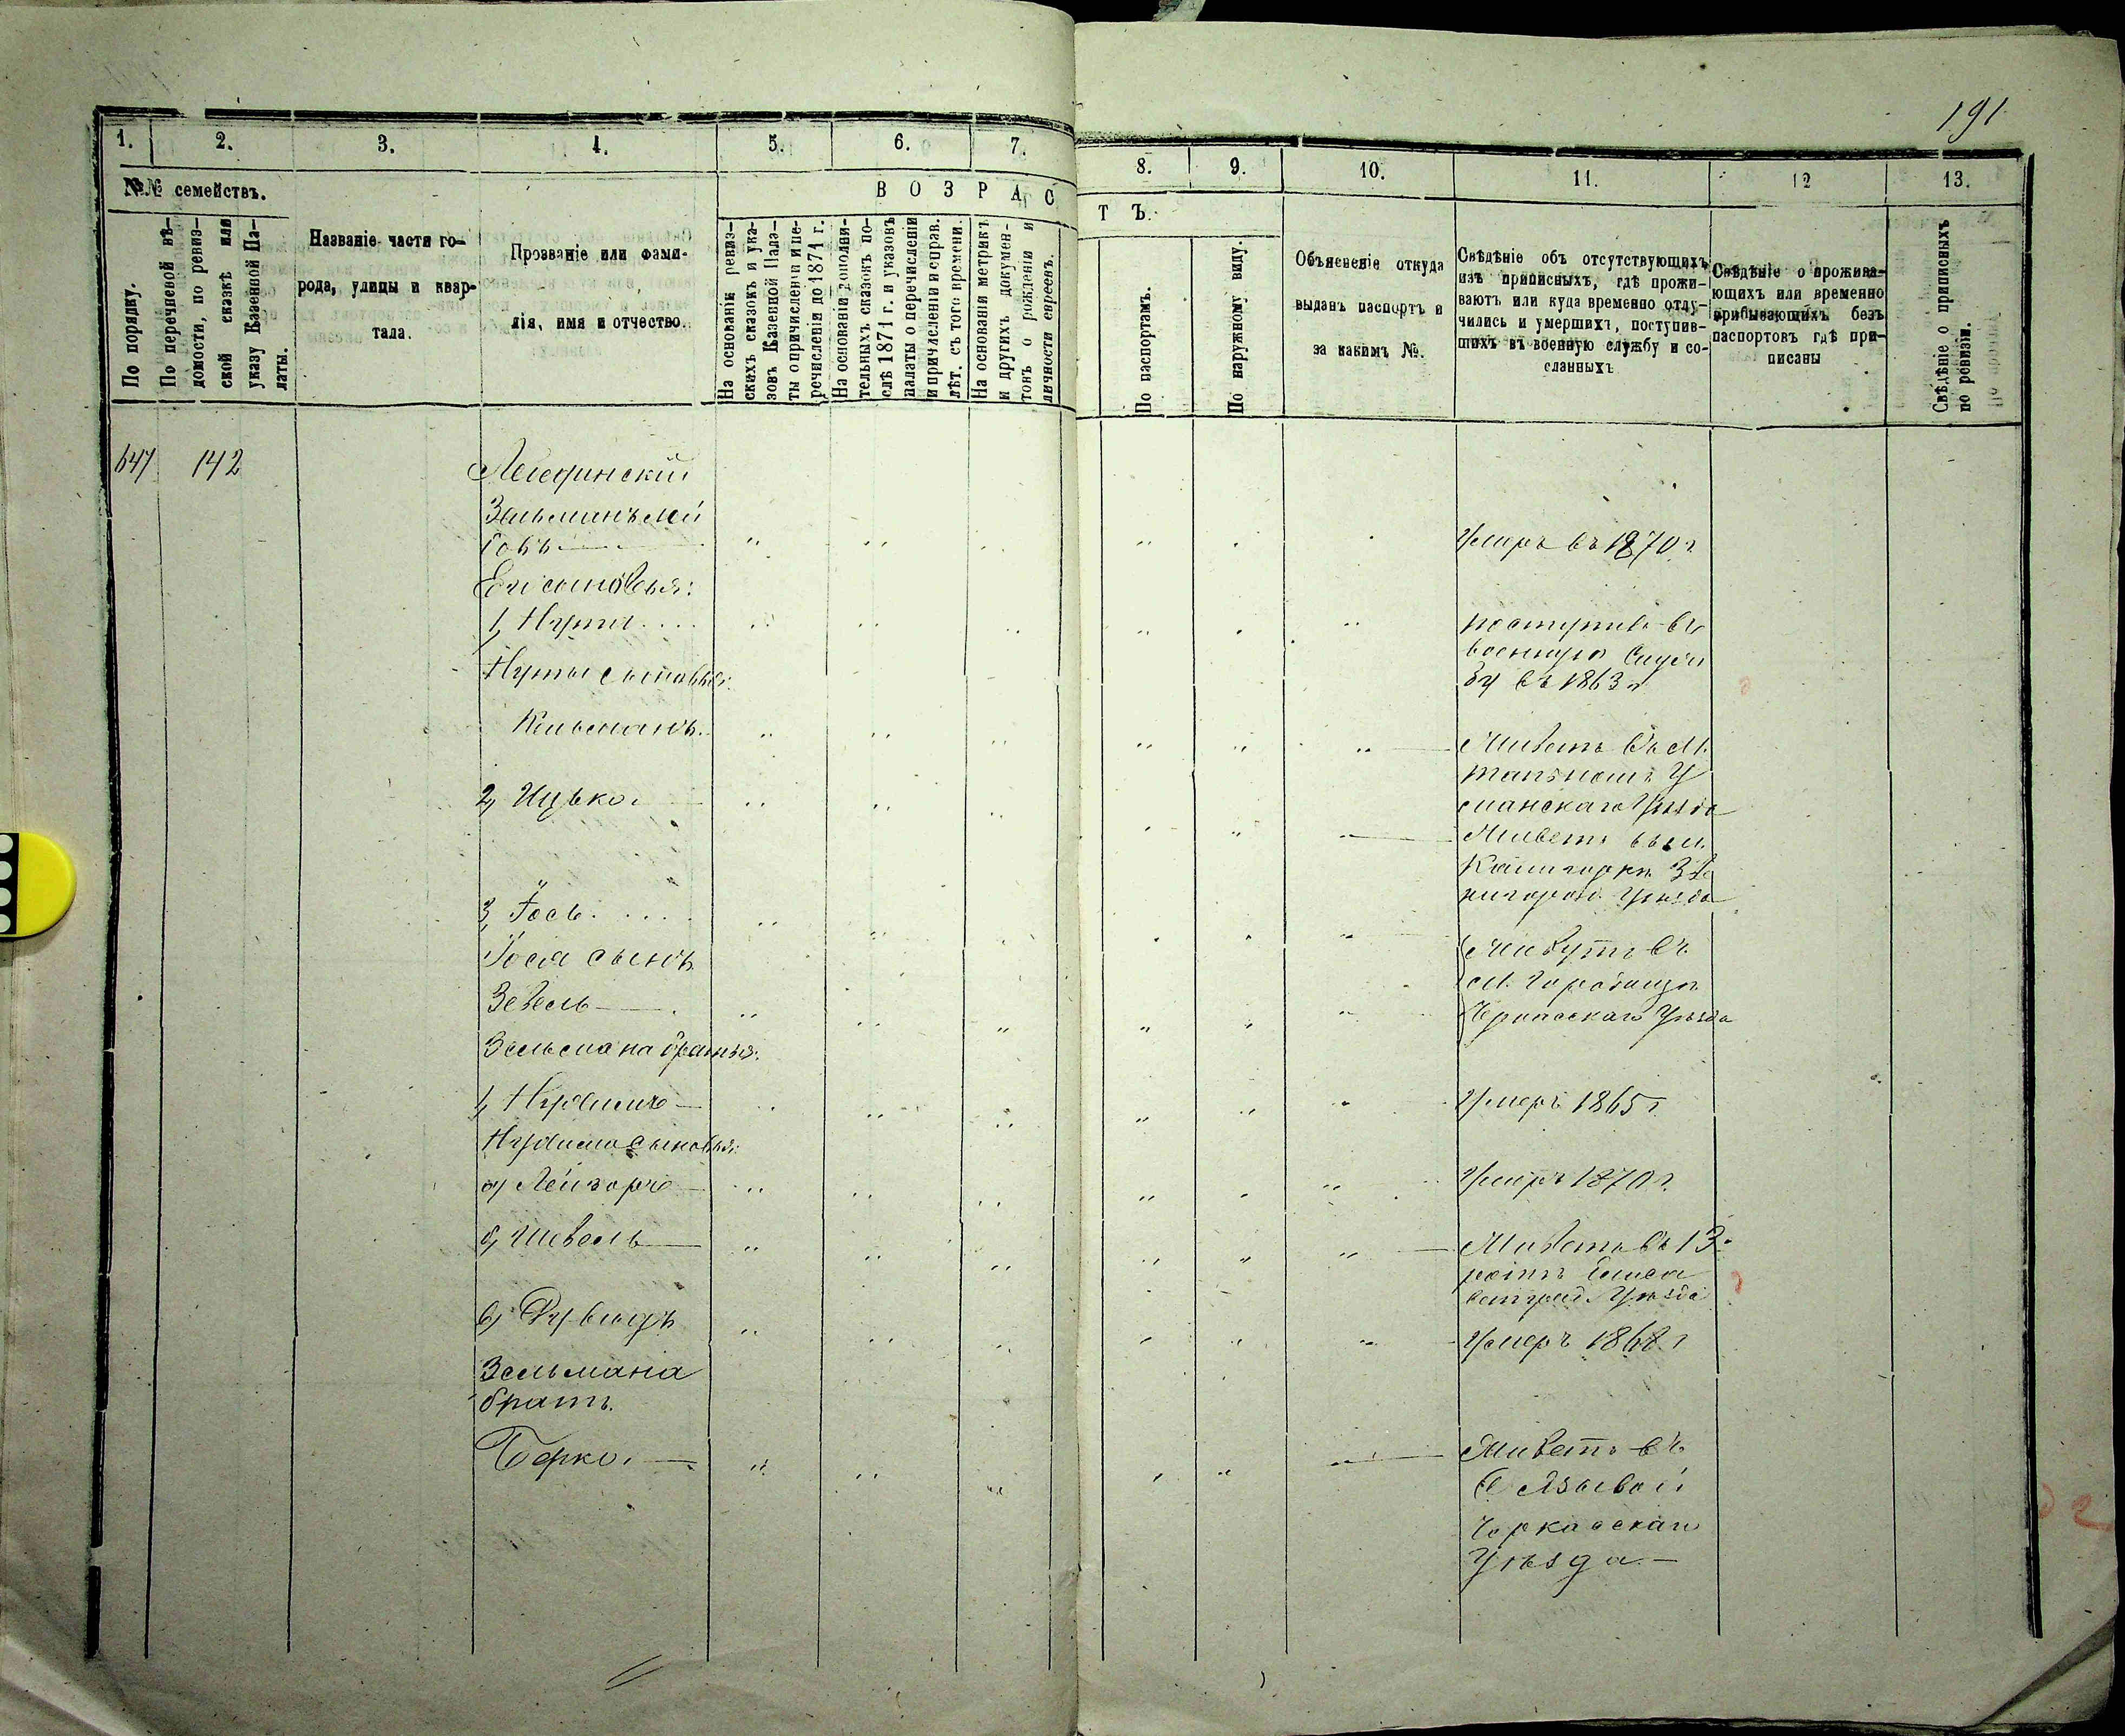 191
1. 2. 3. 4. 5. 6. 7. 8. 9. 10. 11. 12 13.
№№ семействъ.
По порядку.
По перечневой вѣ-
домости, по ревиз-
ской сказкѣ или
указу Казенной Па-
латы.
Названіе части го-
рода, улицы и квар-
тала.
Прозваніе или фами-
лія, имя и отчество.
ВОЗРАСТЪ.
На основаніи ревиз-
скихъ сказокъ и ука-
зовъ Казенной Пала-
ты о причисленіи и пе-
речисленіи до 1871 г.
На основаніи дополни-
тельныхъ сказокъ по-
слѣ 1871 г. и указовъ
палаты о перечисленіи
и причисленіи и справ.
лѣт. съ того времени.
На основаніи метрикъ
и другихъ докумен-
товъ о рожденіи и
личности евреевъ.
По паспортамъ.
По наружному виду.
Объясненіе откуда
выданъ паспортъ и
за какимъ №.
Свѣдѣніе объ отсутствующихъ
изъ приписныхъ, гдѣ прожи-
ваютъ или куда временно отлу-
чились и умершихъ, поступив-
шихъ въ военную службу и со-
сланныхъ
Свѣдѣніе о прожива-
ющихъ или временно
прибывающихъ безъ
паспортовъ гдѣ при-
писаны
Свѣдѣніе о приписныхъ
по ревизіи.
647 142
Лебединскій
Зельманъ Лей
бовъ
Умеръ въ 1870 г
Его сыновья:
1, Нута
поступилъ въ
военную служ
бу въ 1863 г
Нуты сыновья:
Кельманъ.
Живетъ въ м.
У
манскаго Уѣзда
2, Ицько.
Живетъ въ м.
Зве
нигород. Уѣзда
3, Іось
Іося сынъ
Зевель
Живутъ въ
м. Городищѣ
Черкасскаго Уѣзда
Зельмана братья:
1, Нухимъ
Умеръ 1865 г.
Нухима сыновья:
а, Лейзоръ
Умеръ 1870 г.
б, Шевель
Живетъ въ 13
ротѣ Елиса
ветград. Уѣзда
в,
Умеръ 1868 г
Зельмана
братъ.
Берко.
Живетъ въ
с Язывой
Черкасскаго
Уѣзда.